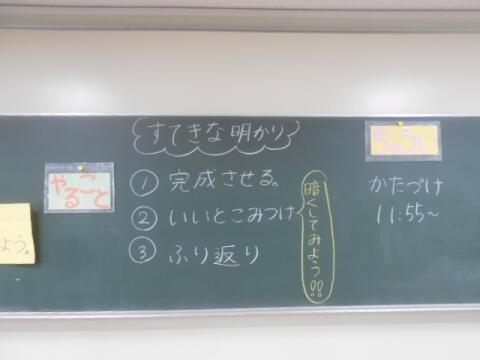 すてきな明かり
やること
① 完成させる。
② いいとこみつけ
③ ふり返り
暗くしてみよう!!
ちゅうい
かたづけ
11:55~
よう。